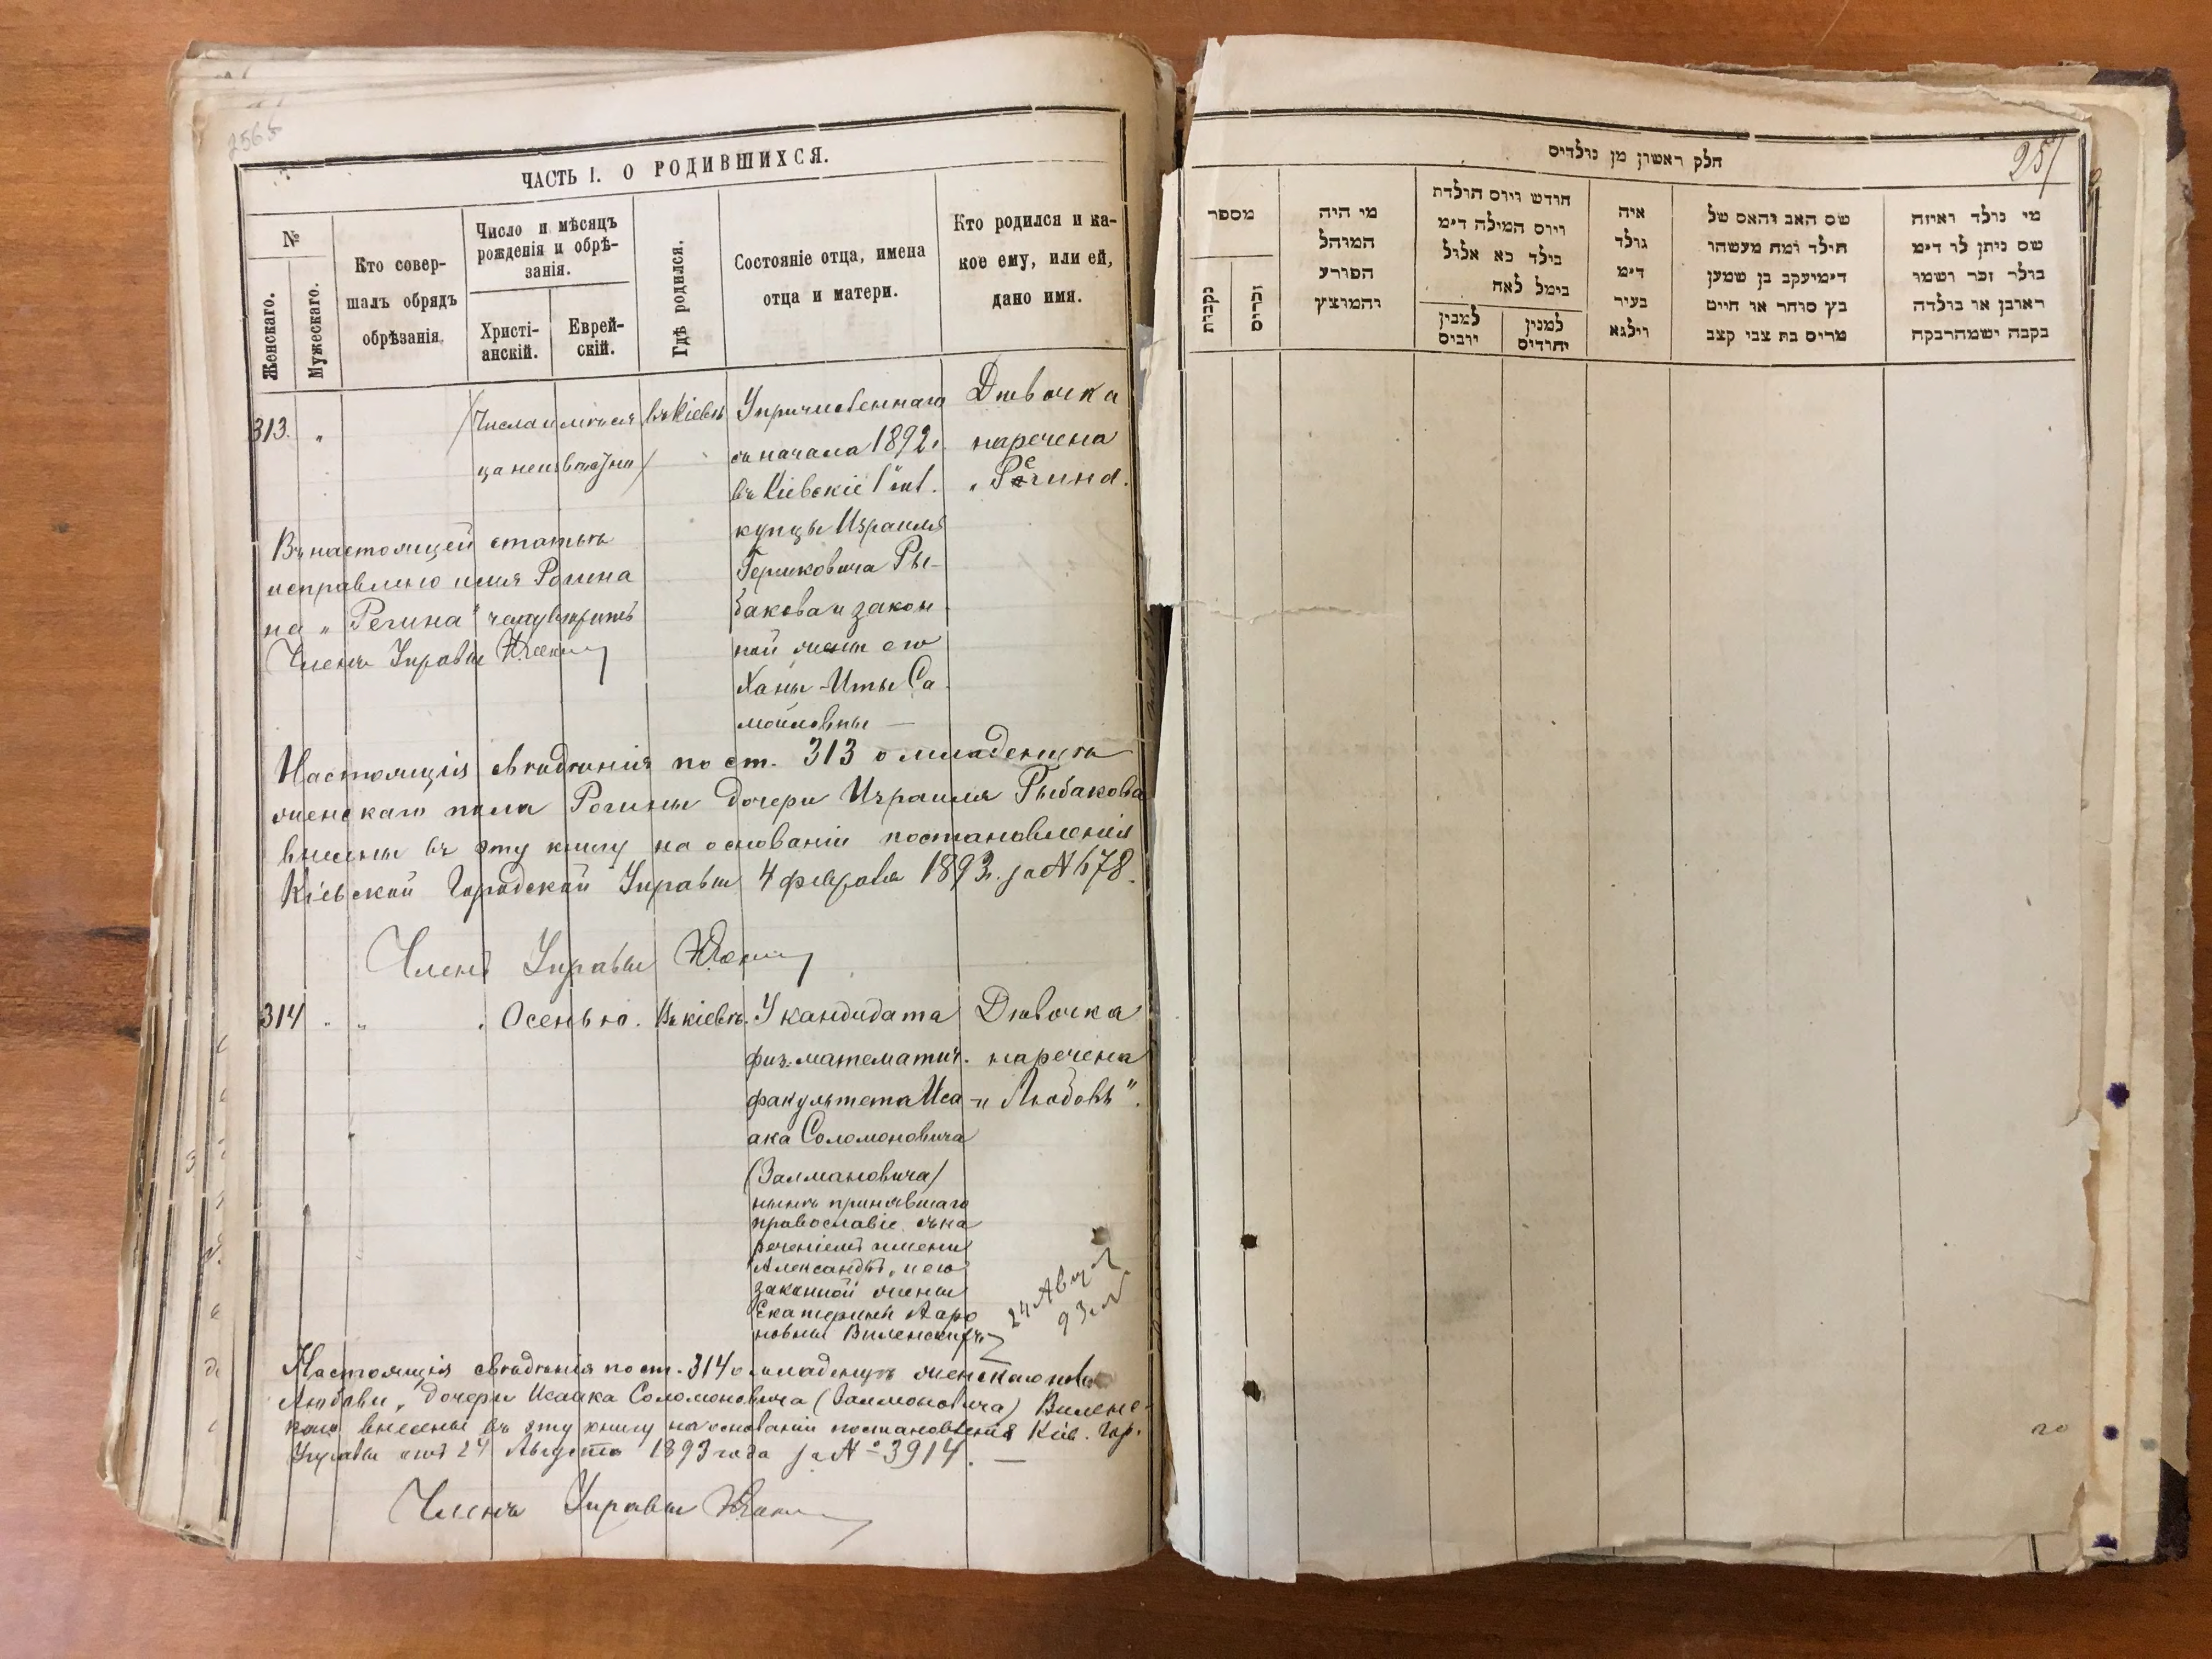 2565
ЧАСТЬ I. О РОДИВШИХСЯ.
№
Женскаго.
Мужескаго.
Кто совер-
шалъ обрядъ
обрѣзанія.
Число и мѣсяцъ
рожденія и обрѣ-
занія.
Христі-
анскій.
Еврей-
скій.
Гдѣ родился.
Состояніе отца, имена
отца и матери.
Кто родился и ка-
кое ему, или ей,
дано имя.
313. „
(Числа и мѣся
ца неизвѣстны)
въ Кіевѣ
У причисленнаго
съ начала 1892 г.
въ Кіевскіе 1й гил.
купцы Израиля
Гершковича Ры-
бакова и закон
ной жены его
Ханы-Иты Са
мойловны —
Дѣвочка
наречена
„Регина.
Въ настоящей статьѣ
исправлено имя Рогина
на „Регина"
Членъ Управы
Настоящія свѣдѣнія по ст. 313 о младенцѣ
женскаго пола Рогины дочери Израиля Рыбакова
внесены въ эту книгу на основаніи постановленія
Кіевской Городской Управы 4 февраля 1893 г. за № 678.
Членъ Управы
314 „ „
Осенью.
Въ Кіевѣ.
У кандидата
физ. математич.
факультета Иса
ака Соломоновича
(Залмановича)
нынѣ принявшаго
православіе съ на
реченіемъ имени
Александръ, и его
законной жены
Екатерины Ааро
новны Виленскихъ
Дѣвочка
наречена
„Любовь".
24 Авг.
93 г.
Настоящія свѣдѣнія по ст. 314 о младенцѣ женскаго пола
Любови, дочери Исаака Соломоновича (Залмоновича) Виленс-
каго внесены въ эту книгу на основаніи постановленія Кіев. Гор.
Управы отъ 24 Августа 1893 года за № 3914. —
Членъ Управы
חלק ראשון מן נולדים
257
מספר
נקבות
זכרים
מי היה
המוהל
הפורע
והמוצץ
חודש ויום תולדת
ויום המילה דימ
בילד כא אלול
בימל לאח
למנין
יהודים
איה
נולד
דימ
בעיר
וילנא
שם האב והאם של
הילד ומה מעשהו
דימיעקב בן שמען
כץ סוחר או חייט
מרים בת צבי קצב
מי נולד ואיזה
שם ניתן לו דימ
נולד זכר ושמו
ראובן או נולדה
נקבה ישמהרבקה